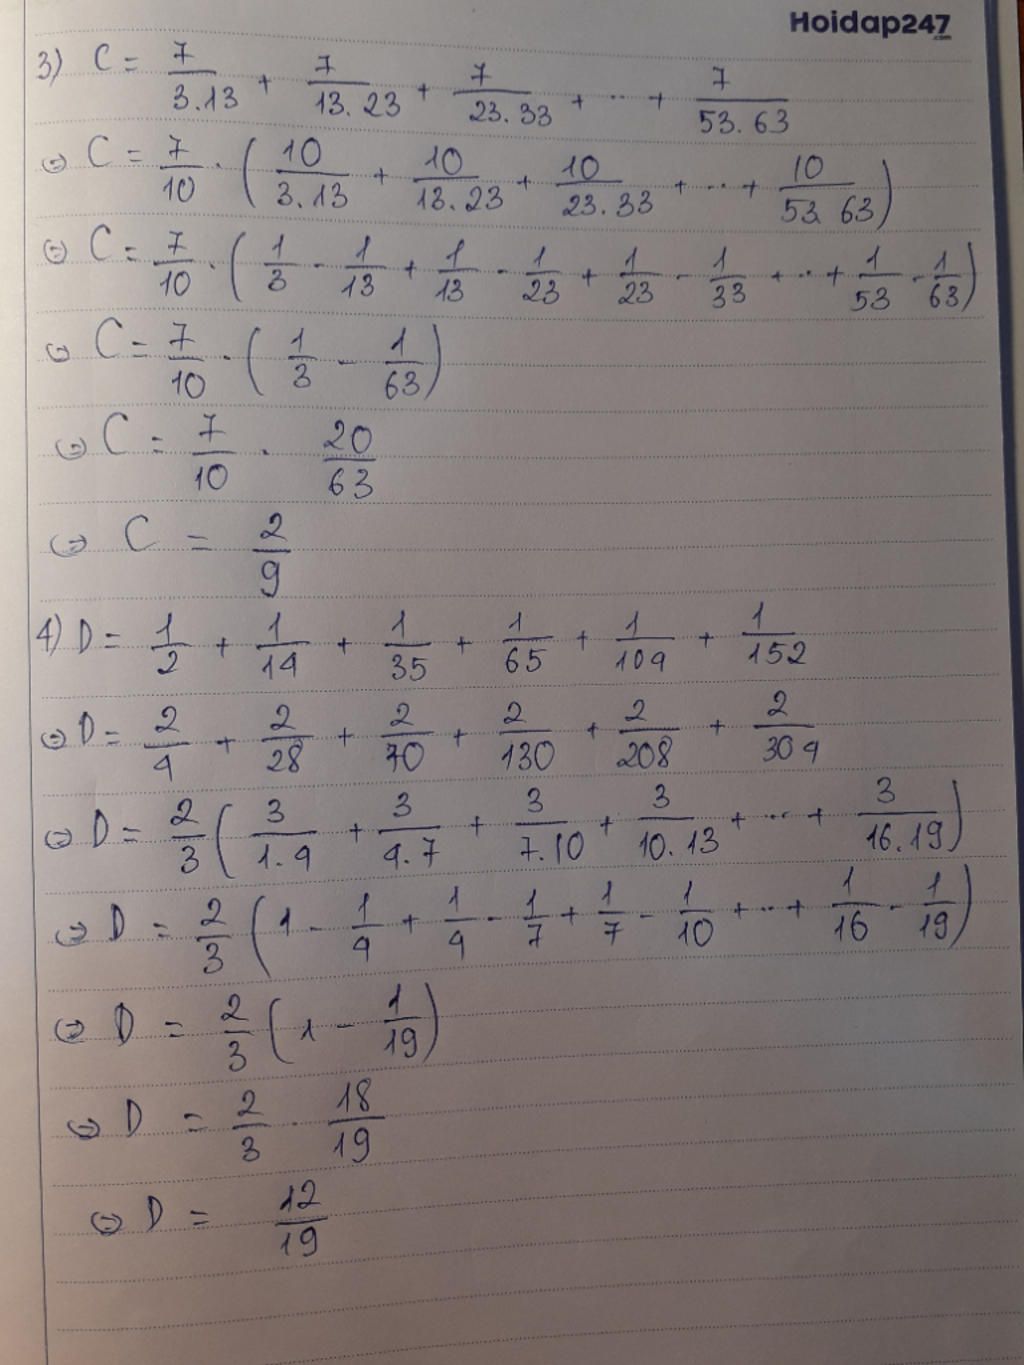 Hoidap247
.com
3) C = 7/3.13 + 7/13.23 + 7/23.33 + ... + 7/53.63
⇔ C = 7/10 . (10/3.13 + 10/13.23 + 10/23.33 + ... + 10/53.63)
⇔ C = 7/10 . (1/3 - 1/13 + 1/13 - 1/23 + 1/23 - 1/33 + ... + 1/53 - 1/63)
⇔ C = 7/10 . (1/3 - 1/63)
⇔ C = 7/10 . 20/63
⇔ C = 2/9
4) D = 1/2 + 1/14 + 1/35 + 1/65 + 1/104 + 1/152
⇔ D = 2/4 + 2/28 + 2/70 + 2/130 + 2/208 + 2/304
⇔ D = 2/3 (3/1.4 + 3/4.7 + 3/7.10 + 3/10.13 + ... + 3/16.19)
⇔ D = 2/3 (1 - 1/4 + 1/4 - 1/7 + 1/7 - 1/10 + ... + 1/16 - 1/19)
⇔ D = 2/3 (1 - 1/19)
⇔ D = 2/3 . 18/19
⇔ D = 12/19